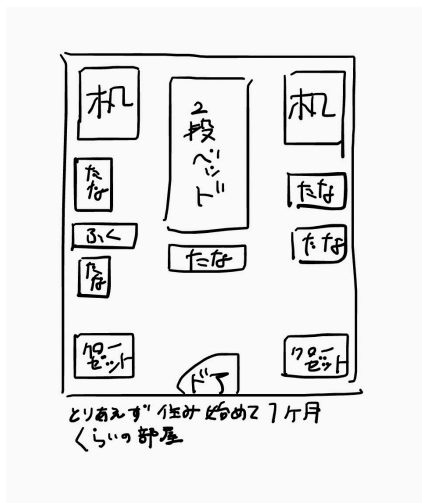 机
2段ベッド
机
たな
たな
ふく
たな
たな
たな
クローゼット
ドア
クローゼット
とりあえず住み始めて1ヶ月
くらいの部屋